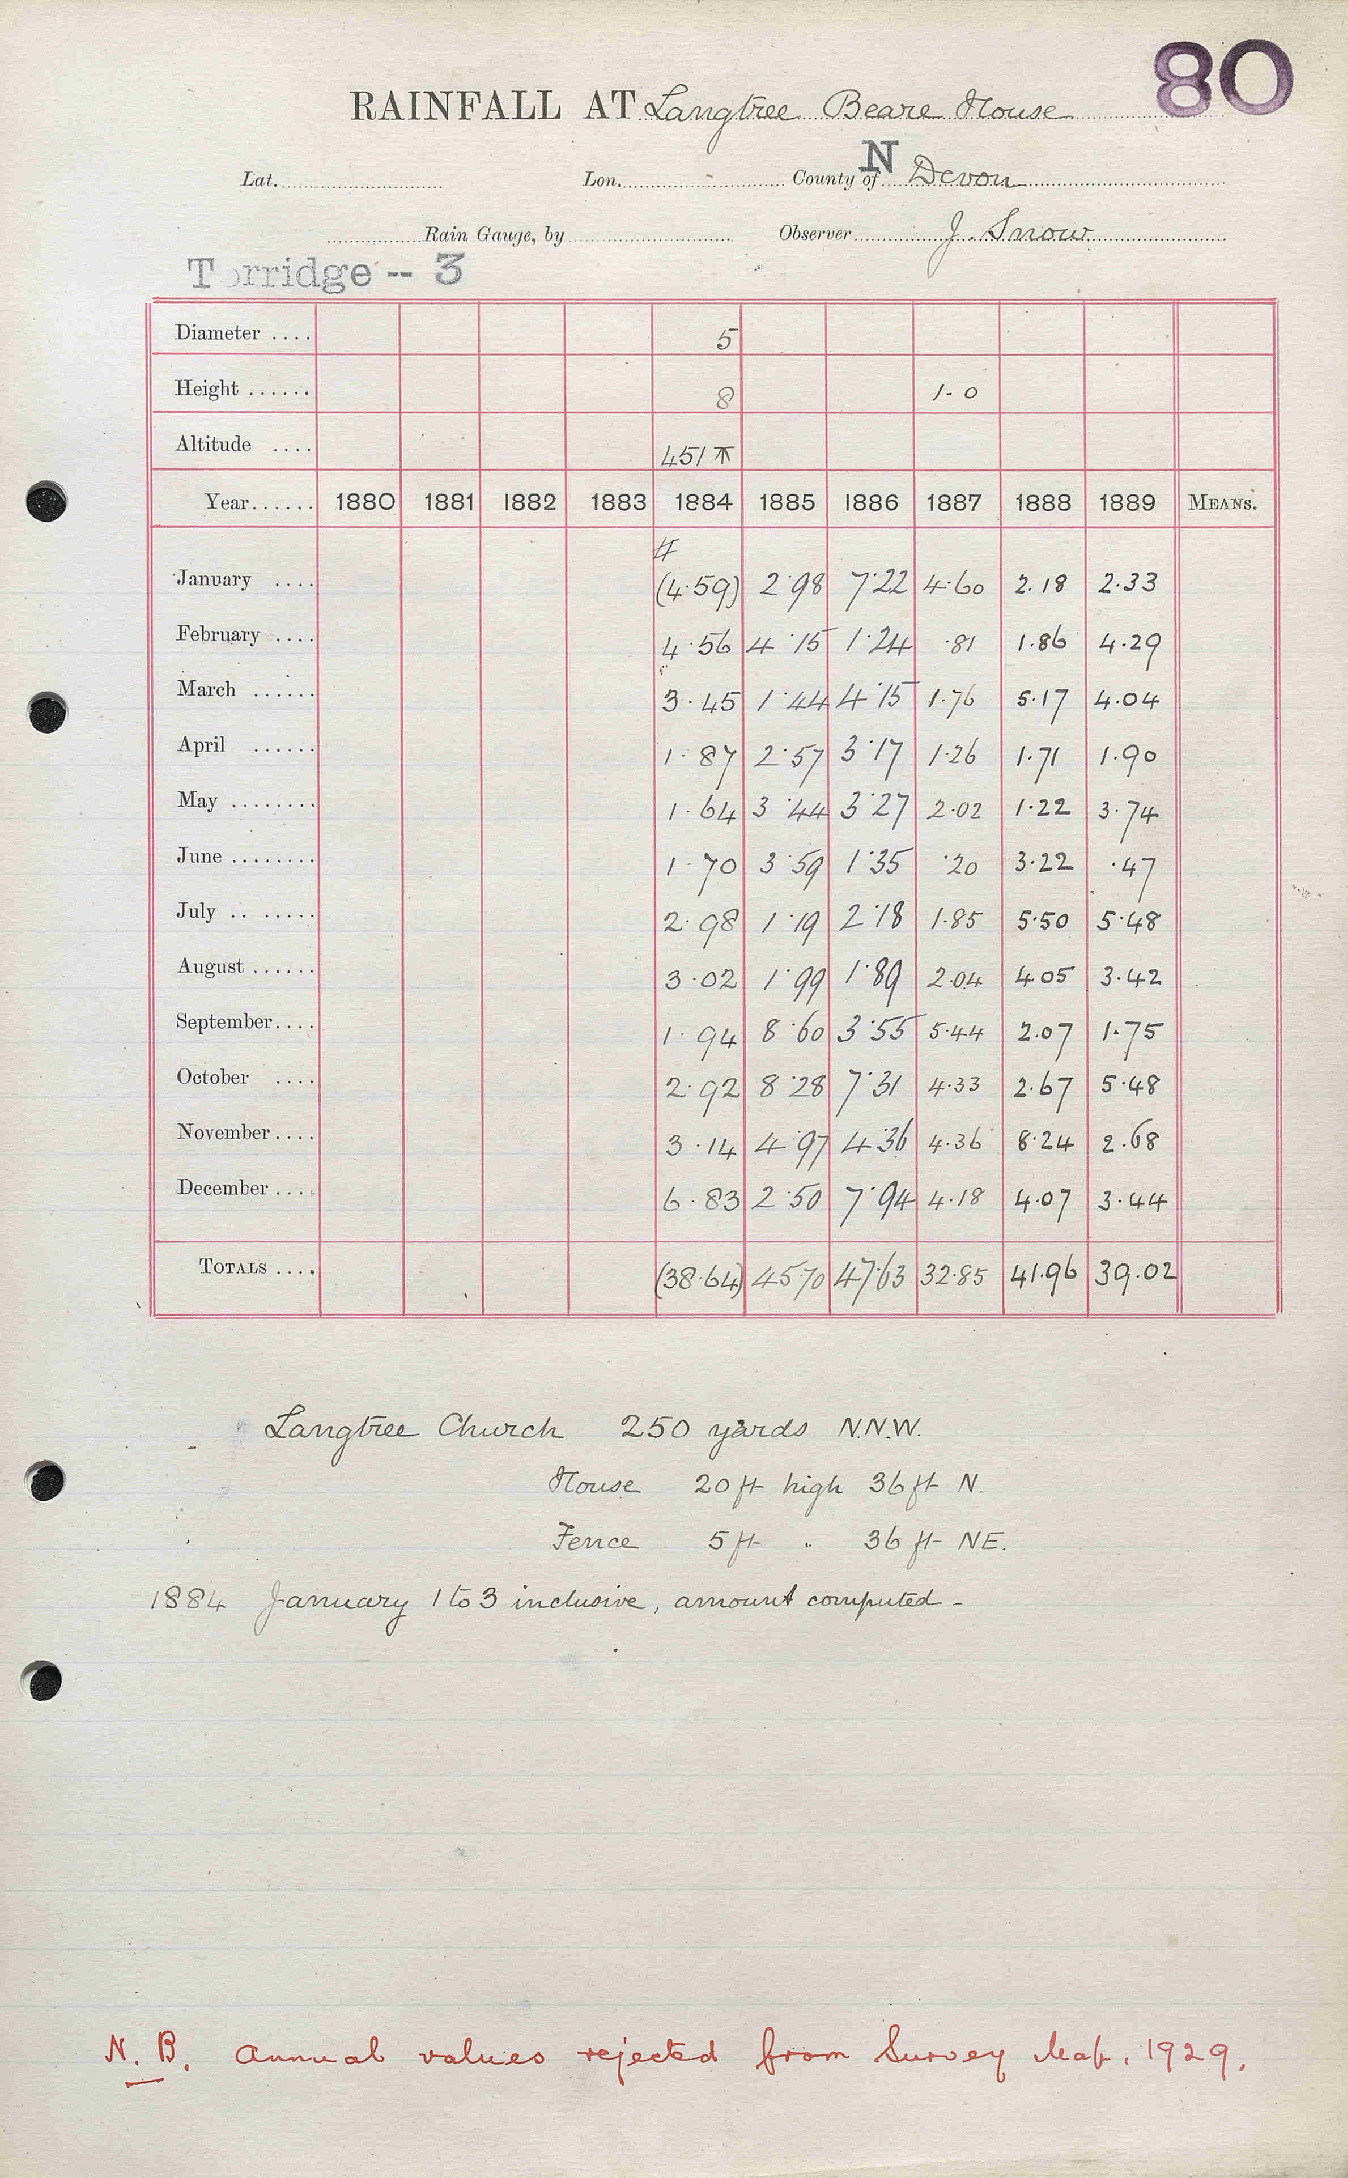 80
RAINFALL AT Langtree Beare House
Lat. Lon. County of N Devon
Rain Gauge, by Observer J. Snow
Torridge -- 3
Diameter .... 5
Height ...... 8 1-0
Altitude .... 451 T
Year...... 1880 1881 1882 1883 1884 1885 1886 1887 1888 1889 MEANS.
#
January .... (4.59) 2.98 7.22 4.60 2.18 2.33
February .... 4.56 4.15 1.24 .81 1.86 4.29
March ...... 3.45 1.44 4.15 1.76 5.17 4.04
April ...... 1.87 2.57 3.17 1.26 1.71 1.90
May ........ 1.64 3.44 3.27 2.02 1.22 3.74
June ........ 1.70 3.59 1.35 .20 3.22 .47
July .. ..... 2.98 1.19 2.18 1.85 5.50 5.48
August ...... 3.02 1.99 1.89 2.04 4.05 3.42
September.... 1.94 8.60 3.55 5.44 2.07 1.75
October .... 2.92 8.28 7.31 4.33 2.67 5.48
November.... 3.14 4.97 4.36 4.36 8.24 2.68
December .... 6.83 2.50 7.94 4.18 4.07 3.44
TOTALS .... (38.64) 45.70 47.63 32.85 41.96 39.02
Langtree Church 250 yards N.N.W.
House 20 ft high 36 ft N.
Fence 5 ft " 36 ft NE.
1884 January 1 to 3 inclusive, amount computed -
N.B. Annual values rejected from Survey Map. 1929.